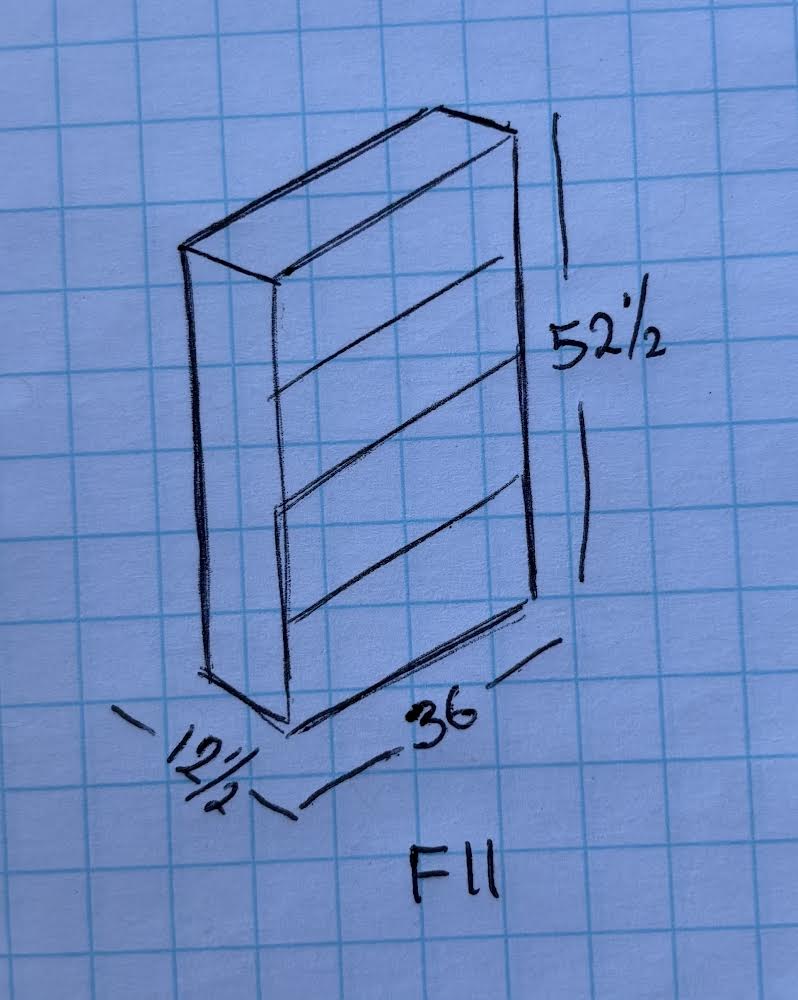 52 1/2
36
12 1/2
F11